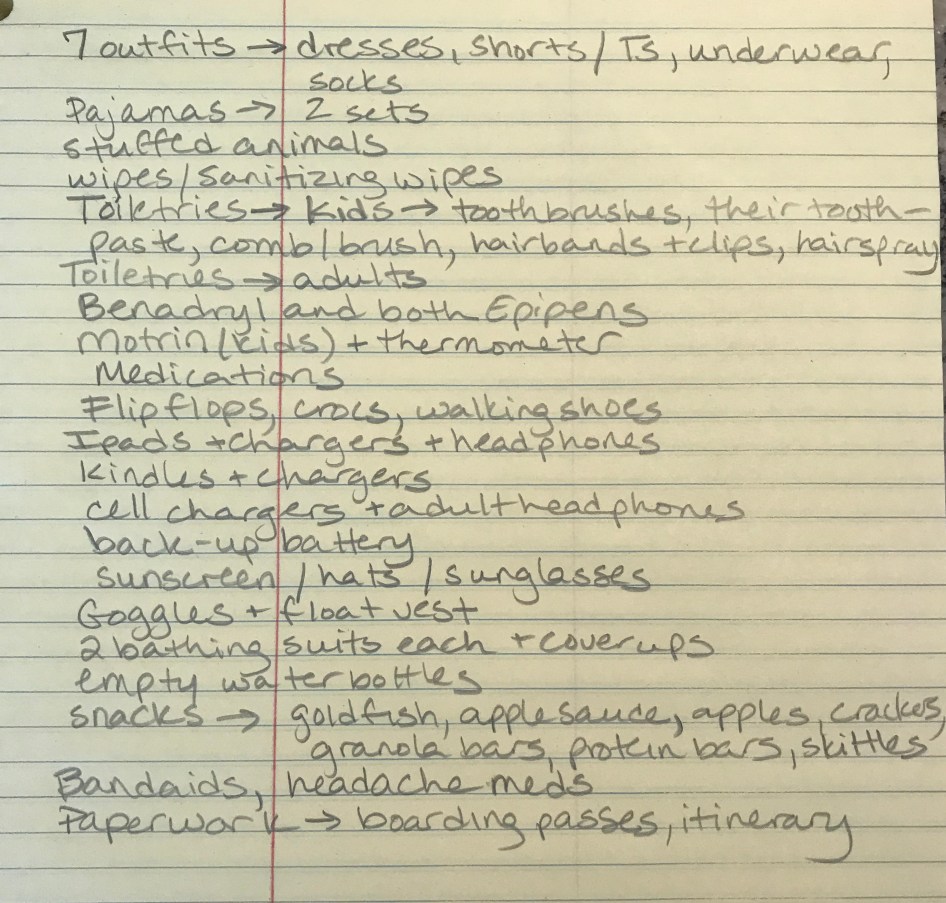 7 outfits → dresses, shorts/Ts, underwear,
socks
Pajamas → 2 sets
stuffed animals
wipes/sanitizing wipes
Toiletries → kids → toothbrushes, their tooth-
paste, comb/brush, hairbands + clips, hairspray
Toiletries → adults
Benadryl and both Epipens
Motrin (kids) + thermometer
Medications
Flipflops, crocs, walking shoes
Ipads + chargers + headphones
Kindles + chargers
cell chargers + adult headphones
back-up battery
sunscreen / hats / sunglasses
Goggles + float vest
2 bathing suits each + coverups
empty water bottles
snacks → goldfish, applesauce, apples, crackes,
granola bars, protein bars, skittles
Bandaids, headache meds
Paperwork → boarding passes, itinerary